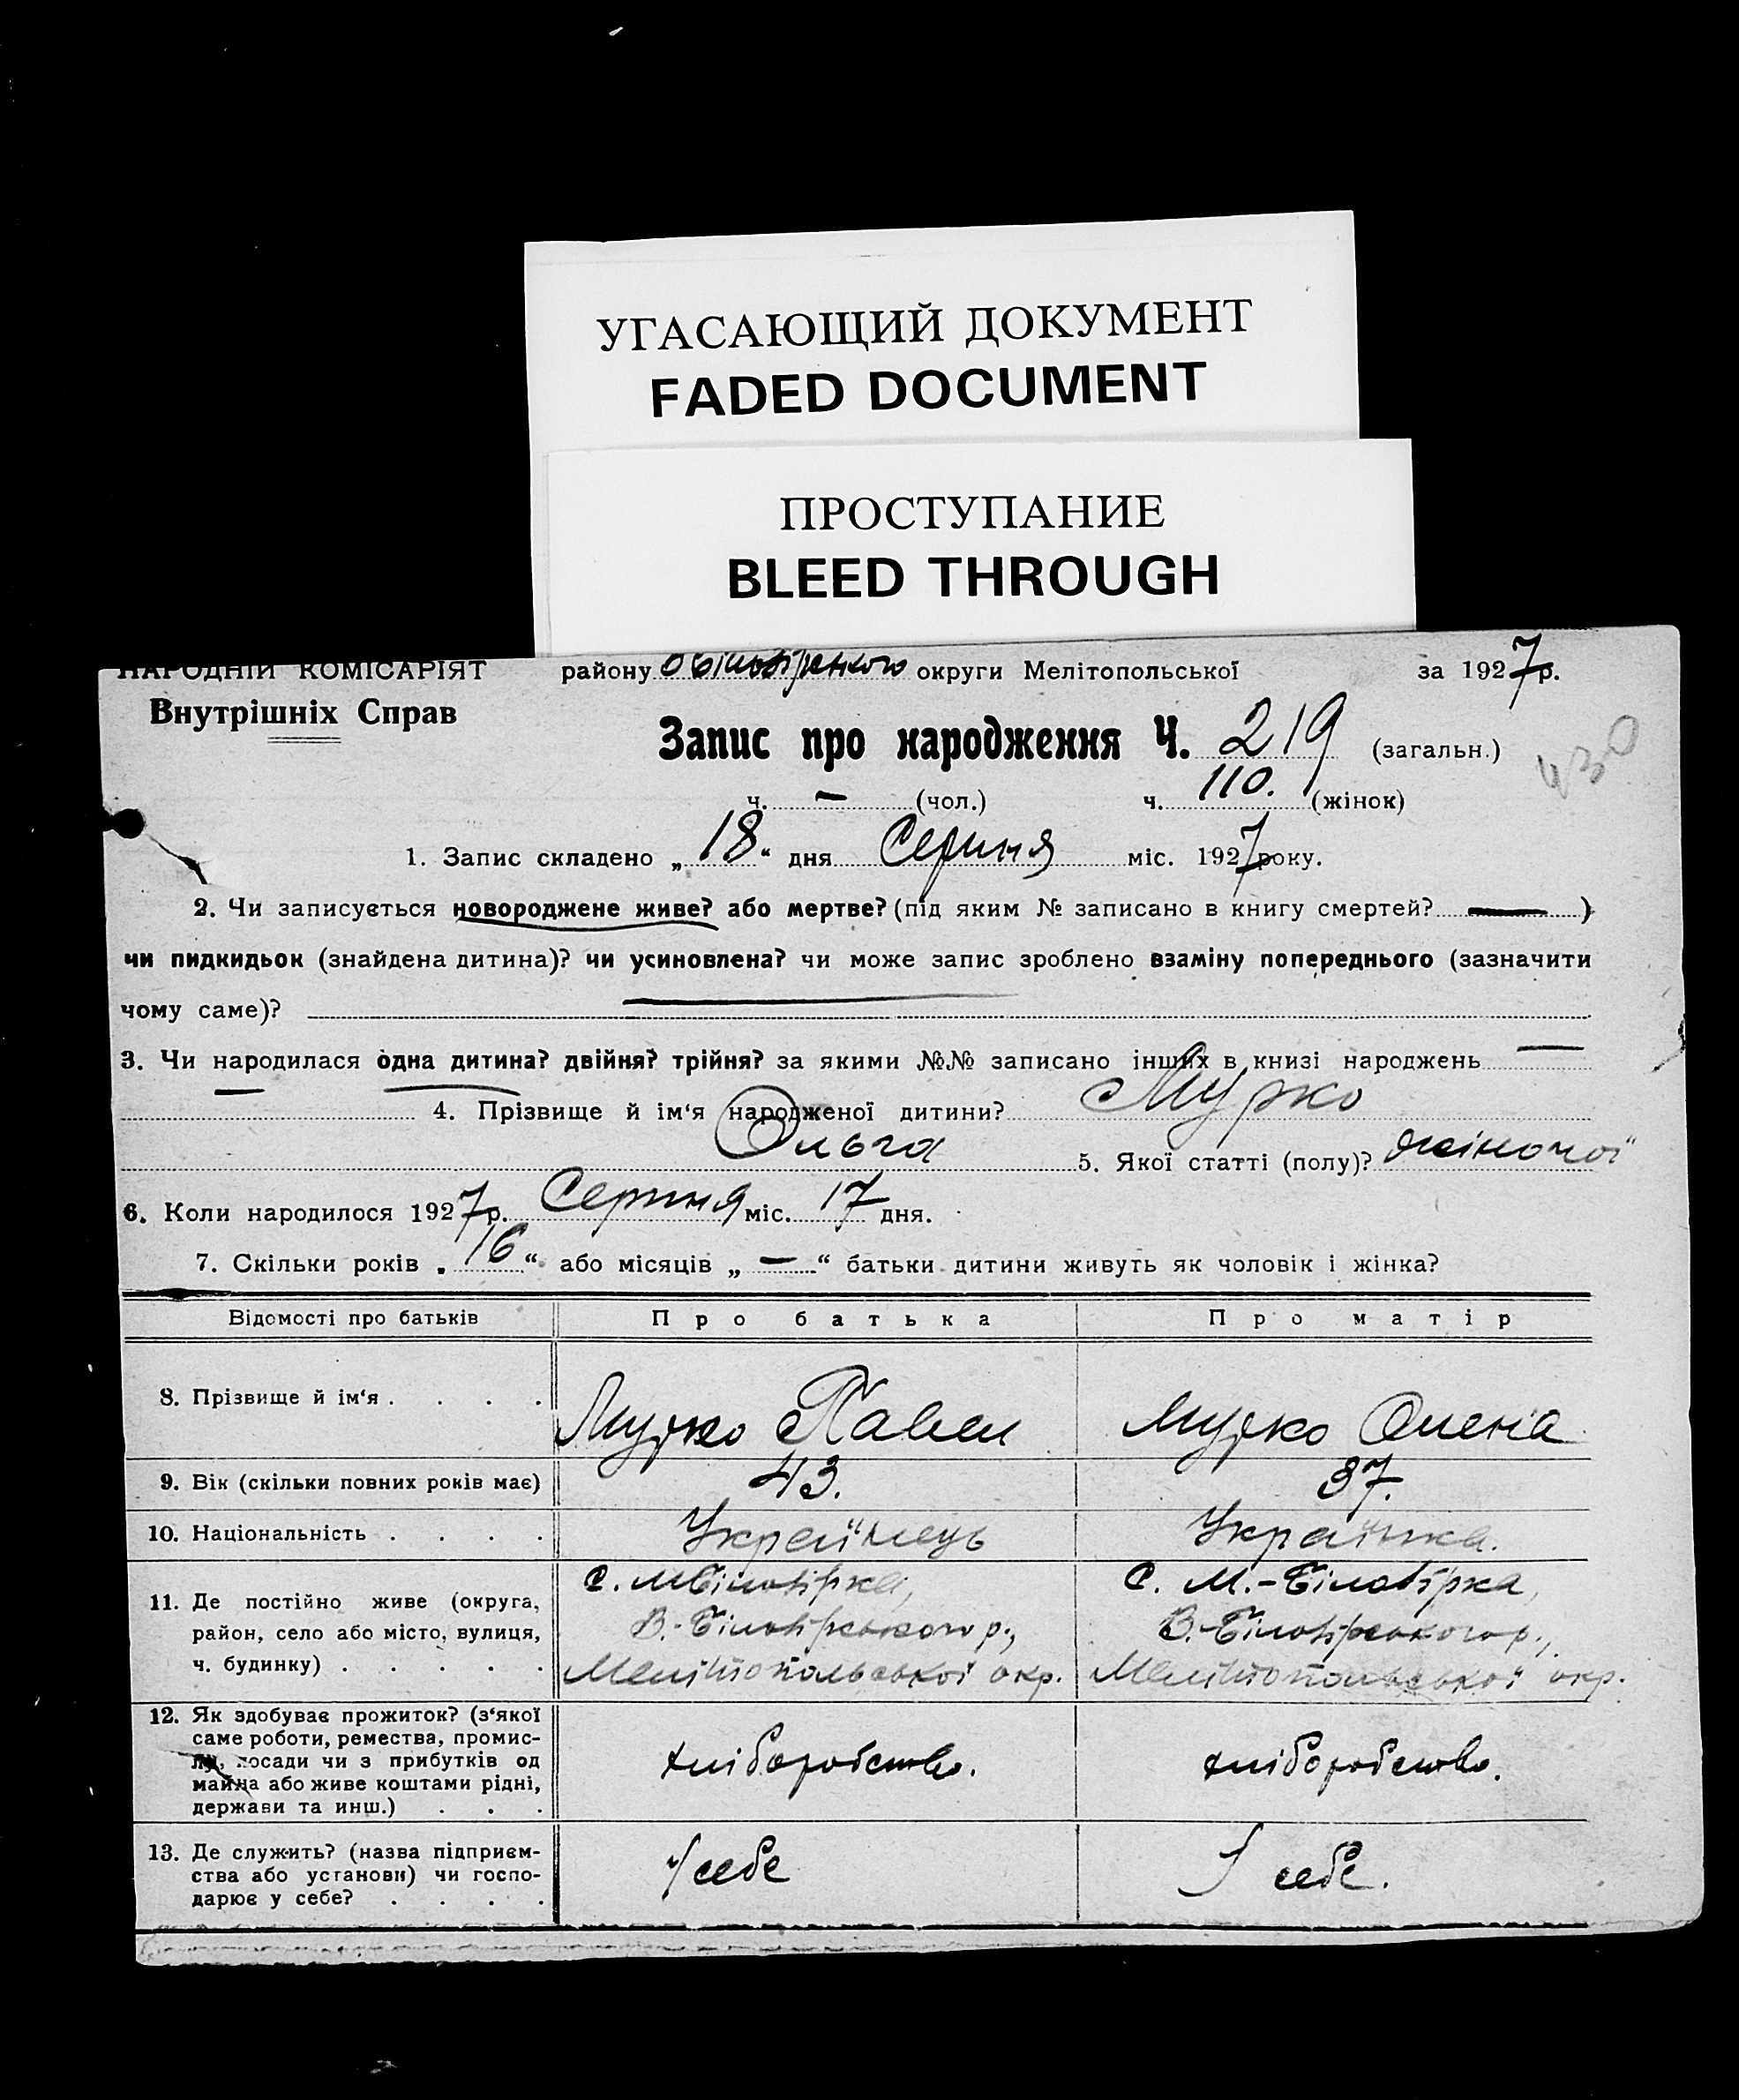 УГАСАЮЩИЙ ДОКУМЕНТ
FADED DOCUMENT
ПРОСТУПАНИЕ
BLEED THROUGH
НАРОДНІЙ КОМІСАРІЯТ району округи Мелітопольської за 1927 р.
Внутрішніх Справ
Запис про народження Ч. 219 (загальн.)
430
ч. — (чол.) ч. 110. (жінок)
1. Запис складено „18“ дня Серпня міс. 1927 року.
2. Чи записується новороджене живе? або мертве? (під яким № записано в книгу смертей? — )
чи пидкидьок (знайдена дитина)? чи усиновлена? чи може запис зроблено взаміну попереднього (зазначити
чому саме)?
3. Чи народилася одна дитина? двійня? трійня? за якими №№ записано інших в книзі народжень —
— 4. Прізвище й ім‘я народженої дитини? Мурко
Ольга 5. Якої статті (полу)? жіночої
6. Коли народилося 1927 р. Серпня міс. 17 дня.
7. Скільки років „16“ або місяців „—“ батьки дитини живуть як чоловік і жінка?
Відомості про батьків Про батька Про матір
8. Прізвище й ім‘я . . . . Мурко Павел Мурко Олена
9. Вік (скільки повних років має) 43. 37.
10. Національність . . . . Українець Українка.
11. Де постійно живе (округа, район, село або місто, вулиця, ч. будинку) . . . . .
с. М Білозірка, В.-Білозірського р., Мелітопольської окр.
С. М.-Білозірка, В.-Білозірського р., Мелітопольської окр.
12. Як здобуває прожиток? (з‘якої саме роботи, ремества, промислу, посади чи з прибутків од майна або живе коштами рідні, держави та инш.) . . .
хліборобство. хліборобство.
13. Де служить? (назва підприємства або установи) чи господарює у себе? . . . .
У себе У себе.